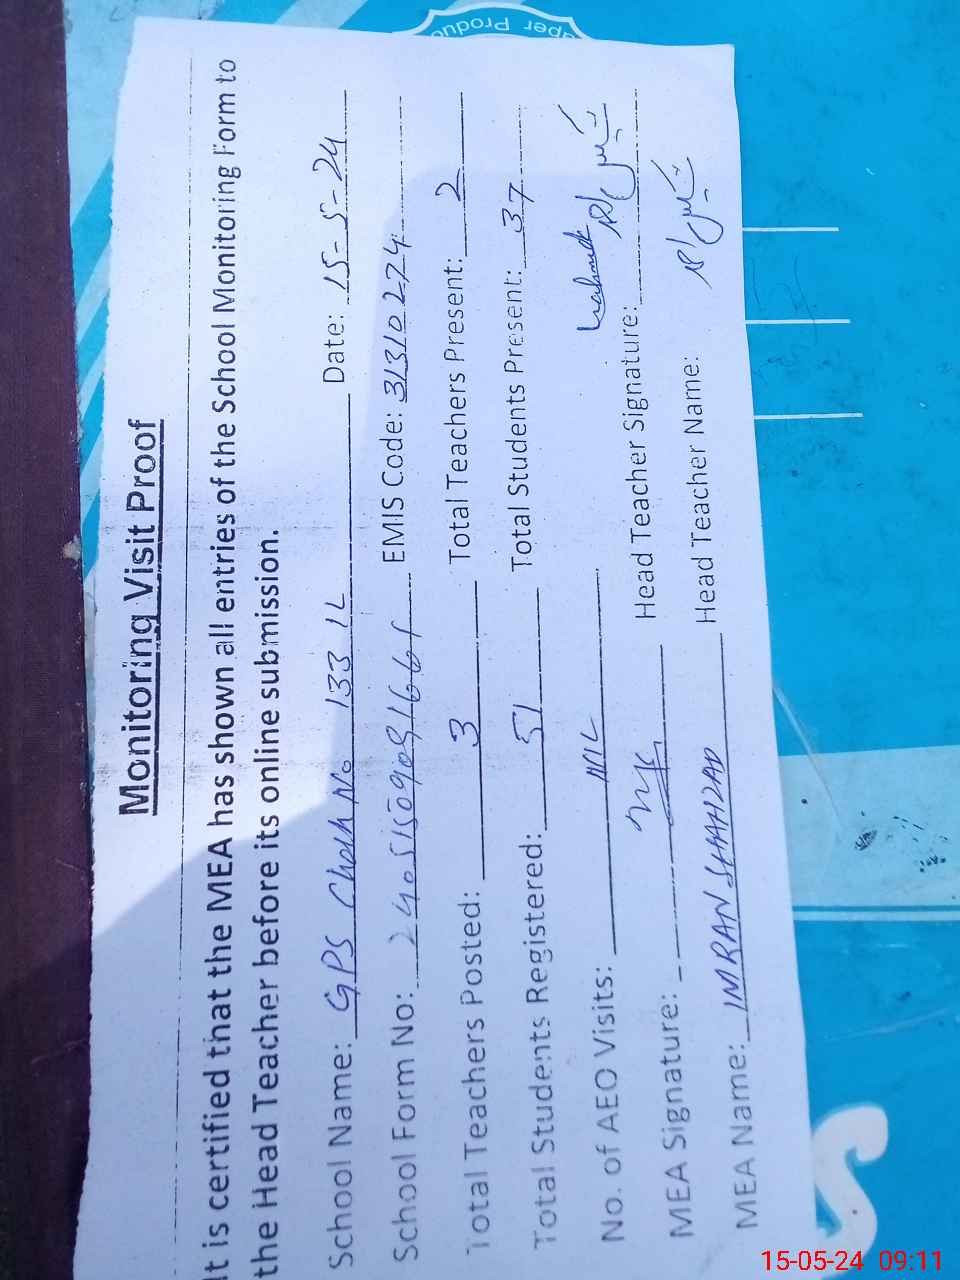 Paper Produc
Monitoring Visit Proof
It is certified that the MEA has shown all entries of the School Monitoring Form to
the Head Teacher before its online submission.
School Name: GPS Chak No 133 1L Date: 15-5-24
School Form No: EMIS Code: 31310274
Total Teachers Posted: 3 Total Teachers Present: 2
Total Students Registered: 51 Total Students Present: 37
No. of AEO Visits: NIL
MEA Signature: Head Teacher Signature:
MEA Name: IMRAN SHAHZAD Head Teacher Name:
S
15-05-24 09:11